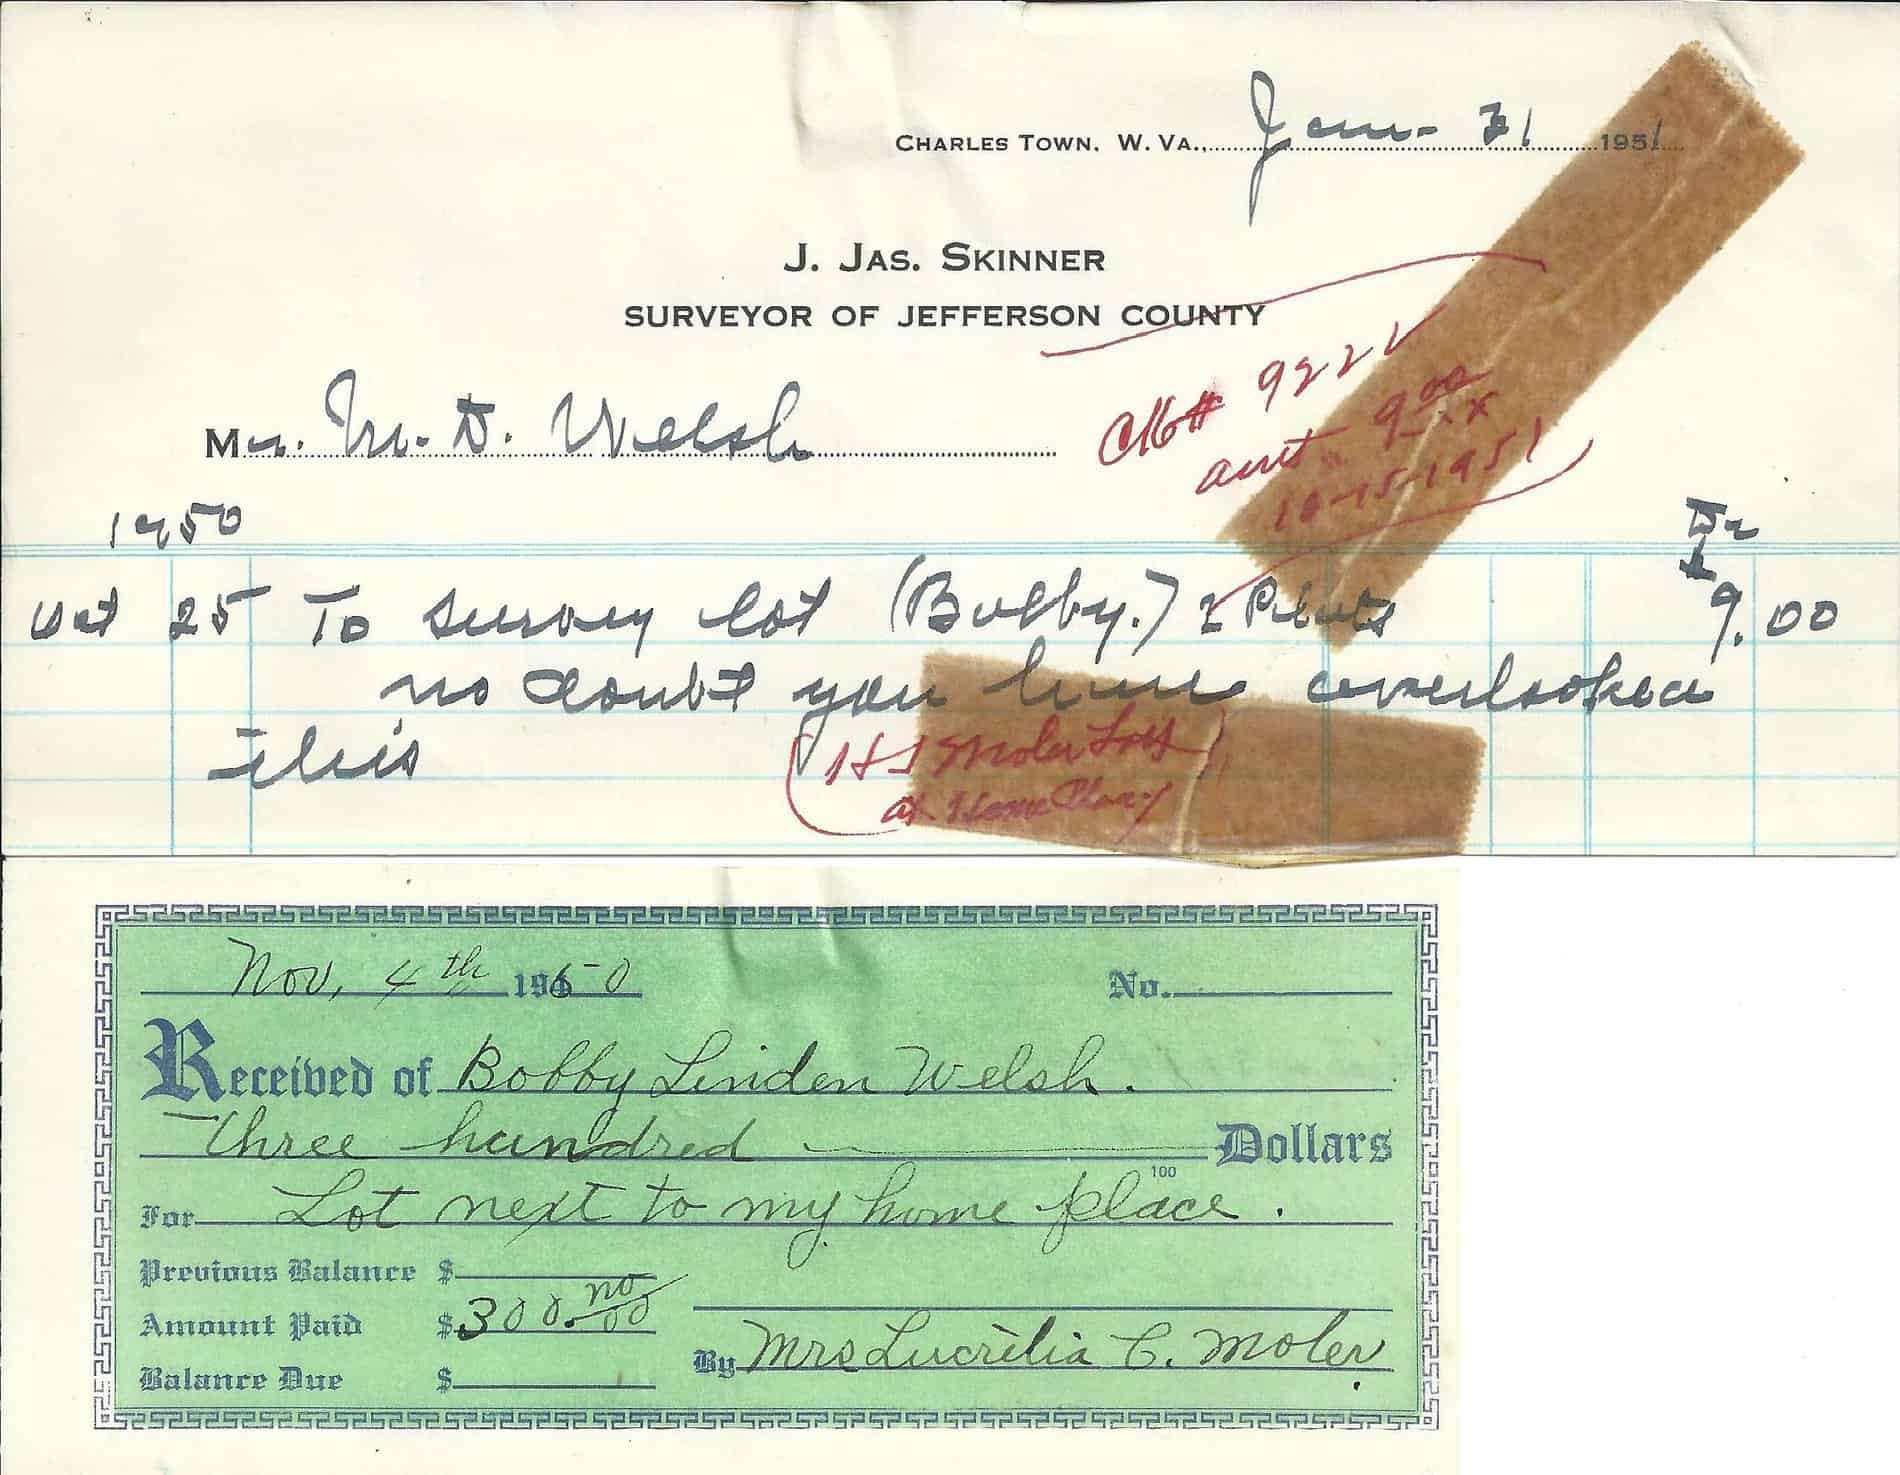 CHARLES TOWN, W. VA., Jan- 31 1951
J. JAS. SKINNER
SURVEYOR OF JEFFERSON COUNTY
Mr. M. D. Welsh
Ck# 922
amt 9.00
10-15-1951
1950
Dr
Oct 25 To survey lot (Bobby.) 2 9.00
no doubt you have overlooked
this
Moler Lot
at Home Place
Nov. 4th 1950 No.
Received of Bobby Linden Welsh.
Three hundred Dollars
100
For Lot next to my home place.
Previous Balance $
Amount Paid $300.no/00
Balance Due $
By Mrs Lucrelia C. Moler